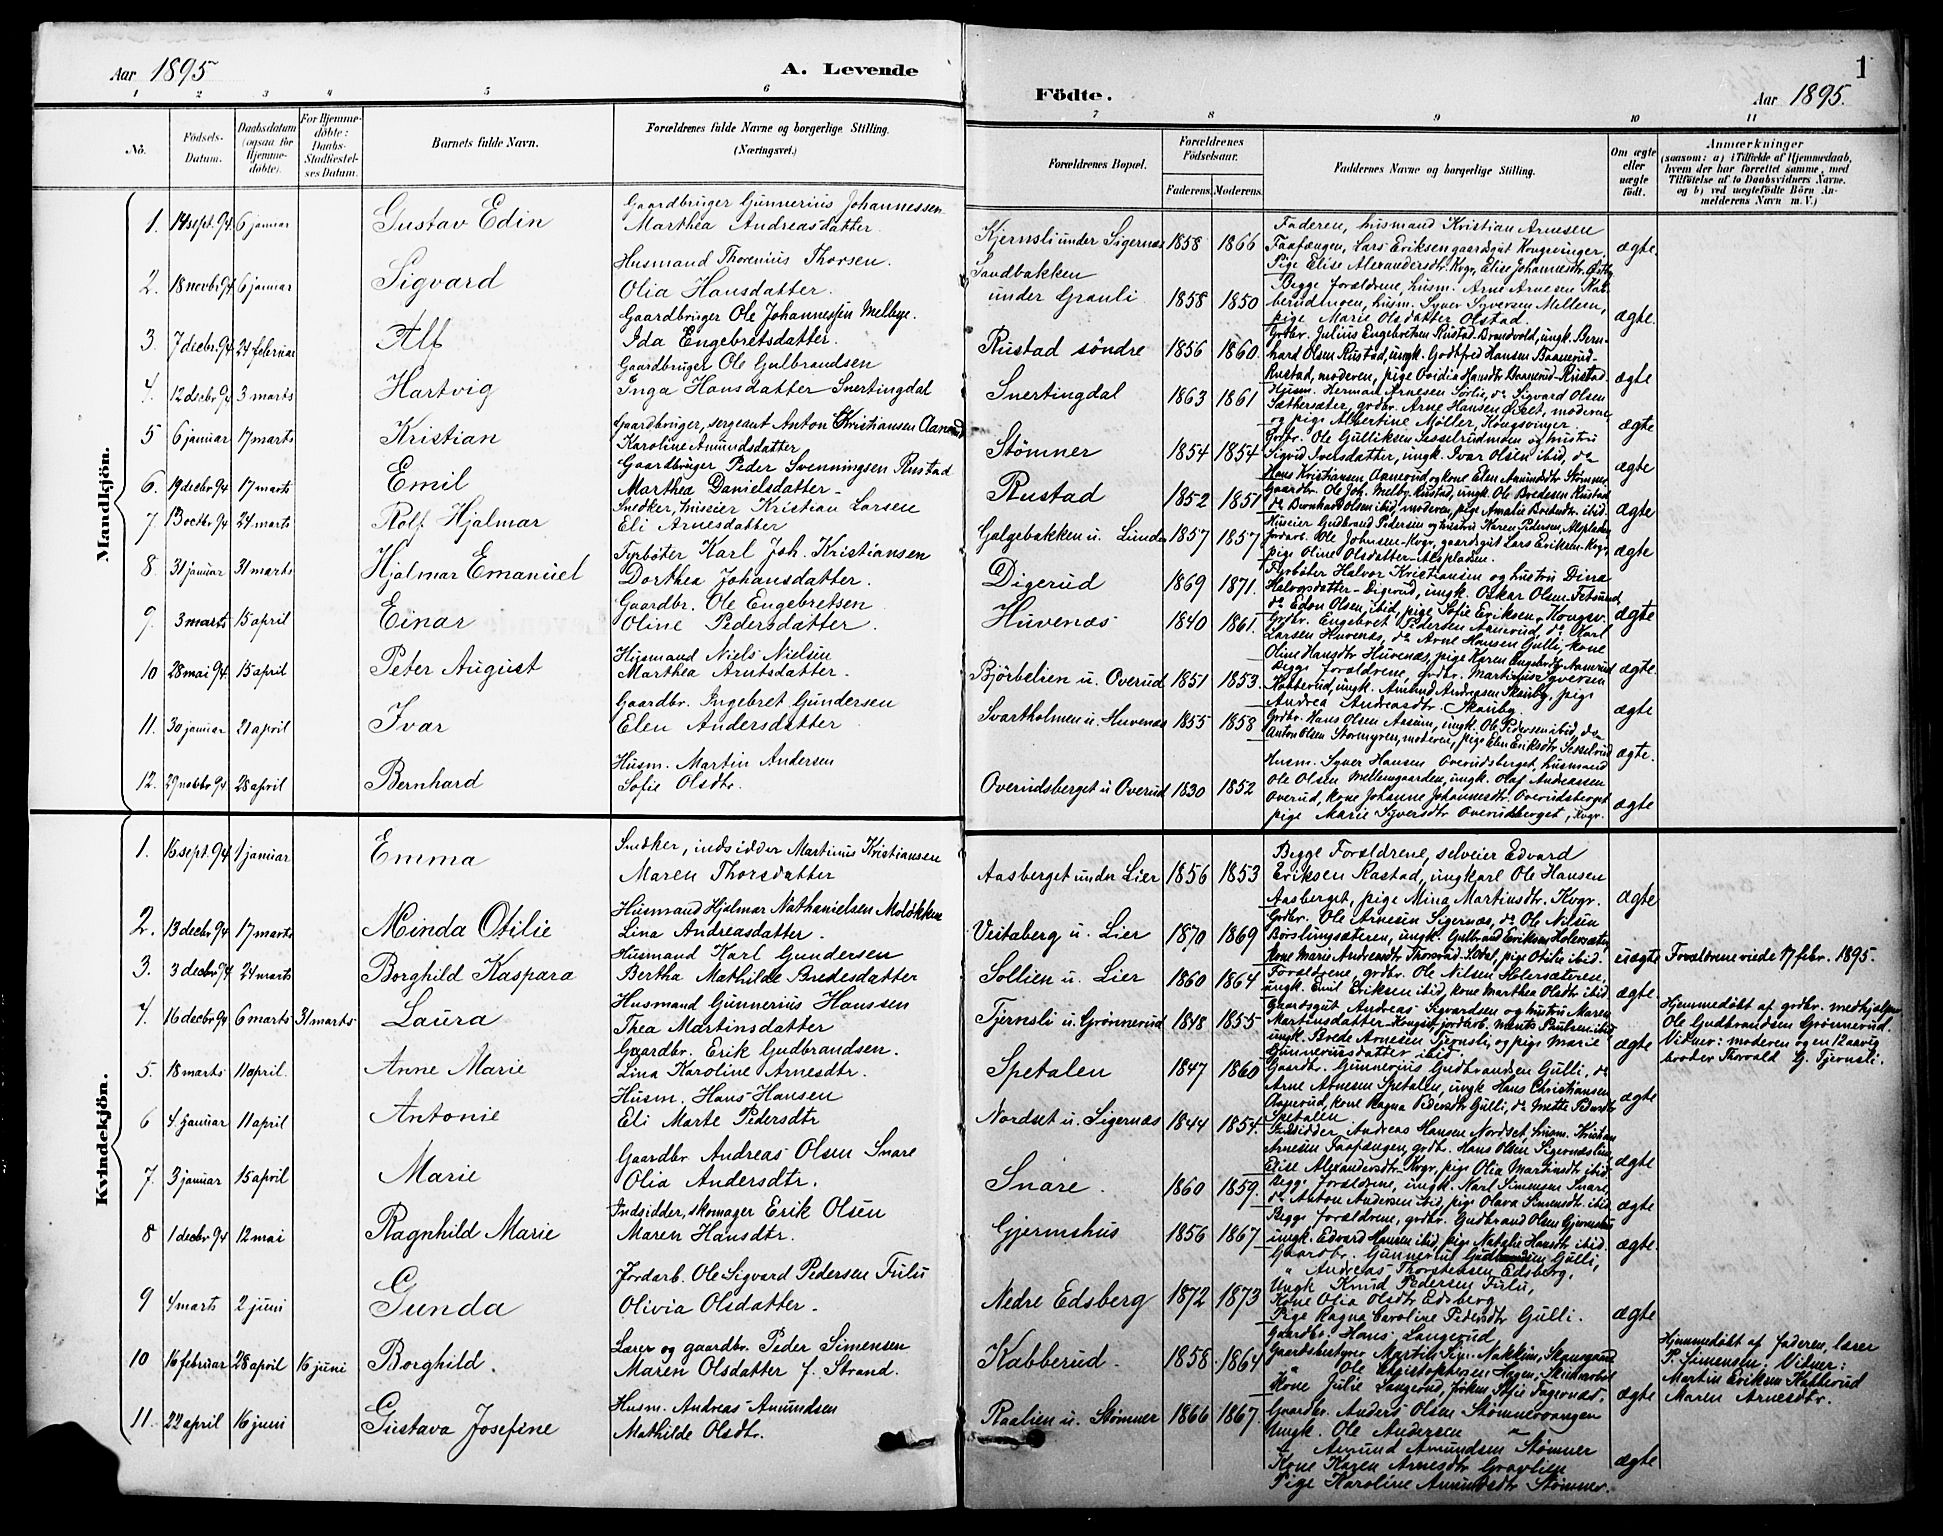 Aar 1895
A. Levende
Födte.
Aar 1895.
1
1 2 3 4 5 6 7 8 9 10 11
No.
Födsels-Datum.
Daabsdatum (ogsaa for Hjemmedöbte).
For Hjemmedöbte: Daabs-Stadfæstelses Datum.
Barnets fulde Navn.
Forældrenes fulde Navne og borgerlige Stilling. (Næringsvei.)
Forældrenes Bopæl.
Forældrenes Födselsaar.
Faderens. Moderens.
Faddernes Navne og borgerlige Stilling.
Om ægte eller uægte födt.
Anmærkninger
(saasom: a) i Tilfælde af Hjemmedaab, hvem der har forrettet samme, med Tilföielse af to Daabsvidners Navne, og b) ved uægtefödte Börn Anmelderens Navn m. V.)
Mandkjön.
1. 14 sept. 94 6 januar Gustav Edin
Gaardbruger Gunnerius Johannessen
Marthea Andreasdatter.
Kjernsli under Sigernæs 1858 1866
Faderen, husmand Kristian Arnesen
Faafængen, Lars Eriksen gaardsgut Kongsvinger.
Pige Elise Alexandersdtr. Kvgr, Elise Johannesdtr.
ægte.
2. 18 novbr. 94 6 januar Sigvard
Husmand Thorenius Thorsen.
Olia Hansdatter.
Sandbakken
under Granli 1858 1850
Begge forældrene, husm. Arne Arnesen
husm. Syver Syversen Mellem,
pige Marie Olsdatter Olstad.
ægte.
3. 7 decbr. 94 24 februar Alf
Gaardbruger Ole Johannessen Melbye.
Ida Engebretsdatter.
Rustad söndre 1856 1860.
Grbr. Julius Engebretsen Rustad-Brandvold, ungk. Bern-
hard Olsen Rustad, ungk. Godtfred Hansen Baanerud-
Rustad, moderen, pige Ovidia Hansdtr Baanerud-Rustad.
ægte
4. 12 decbr 94 3 marts Hartvig
Gaardbruger Ole Gulbrandsen
Inga Hansdatter Snertingdal
Snertingdal 1863 1861
Husm. Herman Arnesen Sørlie, do Sigvard Olsen
Sættersæter, grdbr. Arne Hansen Øiset, moderen
og pige Albertine Møller, Kongsvinger.
ægte
5 6 januar 17 marts Kristian
Gaardbruger, sergeant Anton Christiansen Aanerud
Karoline Amundsdatter
Stømner 1854 1854
Grbr. Ole Gulliksen Sesselrudmoen og hustru
Sigrid Iversdatter, ungk. Ivar Olsen ibid, do
Hans Kristiansen Aanerud og kone Elen Amundsdtr Stømner
ægte
6. 19 decbr 94 17 marts Emil
Gaardbruger Peder Svenningsen Rustad
Marthea Danielsdatter
Rustad 1852 1851
Gaardbr. Ole Joh. Melby-Rustad, ungk. Ole Bredesen Rustad
do Bernhard Olsen ibid, moderen, pige Amalie Bredesdtr ibid.
ægte
7. 13 octbr. 94 24 marts Rolf Hjalmar
Snedker, huseier Kristian Larsen
Eli Arnesdatter
Galgebakken u. Linder 1857 1857
Huseier Gudbrand Pedersen og hustru Karen Pedersen, Alepladsen
Jordarb. Ole Johnsen-Kvgr, gaardsgut Lars Eriksen-Kvgr.
pige Oline Olsdatter-Alepladsen.
ægte
8. 31 januar 31 marts Hjalmar Emanuel
Fyrbøter Karl Joh. Kristiansen
Dorthea Johansdatter.
Digerud 1869 1871.
Fyrbøter Halvor Kristiansen og hustru Dina
Halvorsdatter-Digerud, ungk. Oskar Olsen-Fetsund
do Edon Olsen, ibid, pige Sofie Eriksen, Kongsv.
ægte
9. 3 marts 15 april Einar
Gaardbr. Ole Engebretsen
Oline Pedersdatter.
Huvenæs 1840 1861.
Grbr. Engebret Pedersen Aamerud, do Karl
Larsen Huvenæs, do Arne Hansen Gulli, kone
Oline Hansdtr Huvenæs, pige Karen Engebrdtr Aamerud
ægte.
10 28 mai 94 15 april Peter August
Husmand Niels Nielsen
Marthea Arntsdatter.
Björbelien u. Overud 1851 1853.
Begge forældrene, grdbr. Martinius Syversen
Kabberud, ungk. Amund Andreasen Skauby, pige
Andrea Andreasdtr. Skauby.
ægte
11. 30 januar 21 april Ivar
Gaardbr. Ingebret Gundersen
Elen Andersdatter.
Svartholmen u. Huvenæs 1855 1858
Grdbr. Hans Olsen Aasum, ungk. Ole Pedersen ibid, do
Anton Olsen Stormyren, moderen, pige Elen Eriksdtr Sesselrud
ægte.
12. 29 novbr 94 28 april Bernhard
Husm. Martin Andersen
Sofie Olsdtr.
Overudsberget u Overud 1830 1852
Husm. Syver Hansen Overudsberget, husmand
Ole Olsen Mellemgaarden, ungk. Olaf Andreassen
Overud, kone Johanne Johannesdtr. Overudsberget
pige Marie Syversdtr Overudsberget, Kvgr.
ægte
Kvindekjön.
1. 16 sept. 94 1 januar Emma
Snedker, indsidder Martinus Kristiansen
Maren Thorsdatter
Aasberget under Lier 1856 1853
Begge Forældrene, selveier Edvard
Eriksen Rastad, ungkarl Ole Hansen
Aasberget, pige Mina Martinsdtr. Kvgr.
ægte
2. 13 decbr. 94 17 marts Minda Otilie
Husmand Hjalmar Nathanielsen Moløkken
Lina Andreasdatter.
Veitaberg u. Lier 1870 1869
Grdbr. Ole Arnesen Sigernæs, do Ole Nilsen
Børslingsæteren, ungk. Gulbrand Eriksen Holersæter
kone Marie Andreasdtr Thorsrud, pige Otilie ibid.
uægte Forældrene viede 17 febr. 1895.
3. 3 decbr. 94 24 marts Borghild Kaspara
Husmand Karl Gundersen
Bertha Mathilde Bredesdatter
Sollien u. Lier 1860 1864
Forældrene, grdbr. Ole Nilsen Holersæteren,
ungk. Emil Eriksen ibid, kone Marthea Olsdtr ibid.
ægte
4. 16 decbr 94 6 marts 31 marts Laura
Husmand Gunnerius Hanssen
Thea Martinsdatter
Tjernsli u. Grønnerud 1848 1855
Gaardsgut Andreas Sigvardsen og hustru Maren
Martinsdatter-Kongsv. jordarb. Ments Paulsen ibid
ungk. Brede Arnesen Tjernsli, og pige Marie
Gunneriusdatter ibid.
ægte
Hjemmedøbt af grdbr. medhjelper
Ole Gudbrandsen Grönnerud.
Vidner: moderen og en 12 aarig
broder Thorvald G. Tjernsli.
5. 18 marts 11 april. Anne Marie
Gaardbr. Erik Gudbrandsen.
Lina Karoline Arnesdtr.
Spetalen 1847 1860
Gaardbr. Gunnerius Gudbrandsen Gulli, do
Arne Arnesen Spetalen, ungk Hans Christiansen
Aanerud, kone Ragna Pedersdtr Gulli, do Mette Pedersdtr
Spetalen
ægte
6 4 januar 11 april Antonie
Husm. Hans Hansen
Eli Marte Pedersdtr
Nordset u. Sigernæs 1844 1854.
Indsidder, Andreas Hansen Nordset, husm. Kristian
Arnesen Faafængen, grdb. Hans Olsen Sigernæslien
Elise Alexandersdtr-Kvgr, pige Olia Martinsdtr ibid.
ægte
7. 3 januar 15 april Marie
Gaardbr Andreas Olsen Snare
Olia Andersdtr.
Snare. 1860 1859.
Begge forældrene, ungk. Karl Simensen Snare,
do Anton Andersen ibid, pige Olava Simensdtr ibid
ægte
8 1 decbr 94 12 mai Ragnhild Marie
Indsidder, skomager Erik Olsen
Maren Hansdtr.
Gjermshus 1856 1867
Begge forældrene, grdbr. Gudbrand Olsen Gjermshus
ungk. Edvard Hansen ibid, pige Natalie Hansdtr ibid.
ægte.
9 4 marts 2 juni Gunda
Jordarb. Ole Sigvard Pedersen Fulu
Olivia Olsdatter.
Nedre Edsberg 1872 1873
Gaardbr. Gunnerius Gudbrandsen Gulli,
" Andreas Thorstensen Edsberg,
Ungk Knud Pedersen Fulu,
Kone Olia Olsdtr Edsberg
Pige Ragna Caroline Pedersdtr Gulli.
ægte
10 16 februar 28 april 16 juni Borghild.
Lærer og gaardbr. Peder Simensen
Maren Olsdatter f. Strand.
Kabberud. 1858. 1864
Gaardbr. Hans Langerud
Gaardsbestyrer Martin Sim. Nakkim, Skansgaard
" Ole Christophersen Hagen,
Kone Julie Langerud, frøken Sofie Fagernæs.
ægte
Hjemmedøbt af faderen, lærer
P. Simensen. Vidner:
Martin Eriksen Kabberud
Maren Arnesdtr.
11. 22 april 16 juni Gustava Josefine
Husm. Andreas Amundsen
Mathilde Olsdtr.
Raalien u. Stømner 1866 1867.
Gaardbr. Anders Olsen Stømnervangen
Ungk. Ole Andersen "
" Amund Amundsen Stømner
Kone Karen Arnesdtr Gravlien
Pige Karoline Amundsdtr Stømner.
ægte